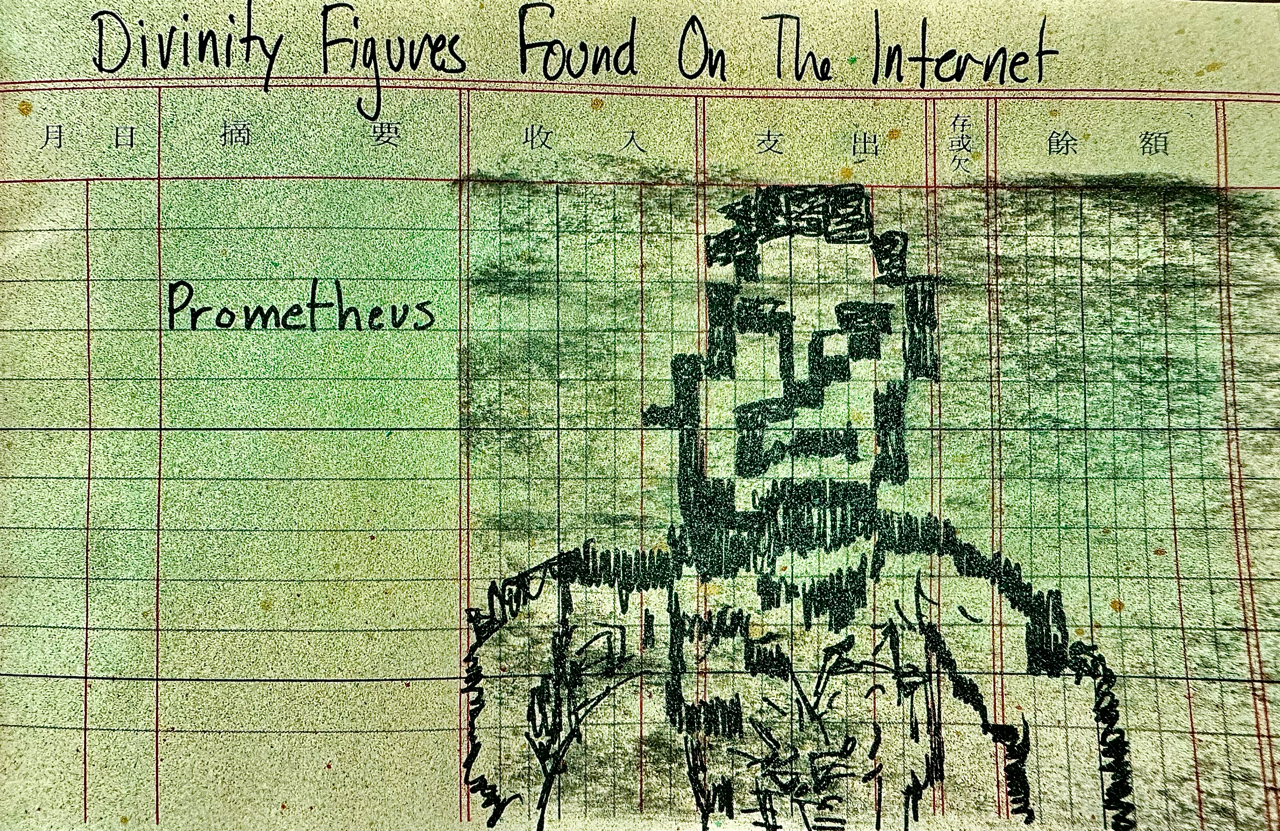 Divinity Figures Found On The Internet
月 日 摘 要 收 入 支 出 存或欠 餘 額
Prometheus